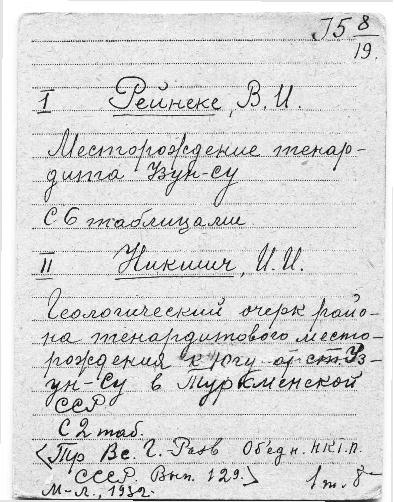 J5 8/19.
I Рейнеке, В. И.
Месторождение тенар-
дита Узун-су
С 6 таблицами
II Никшич, И. И.
Геологический очерк райо-
на тенардитового место-
рождения к югу от ст. Уз-
ун-Су в Туркменской
ССР
С 2 таб.
<Тр Вс. Г.-Разв Об'едн. НКТП.
СССР. Вып. 129.> 1 т. 8°
М-Л., 1932.